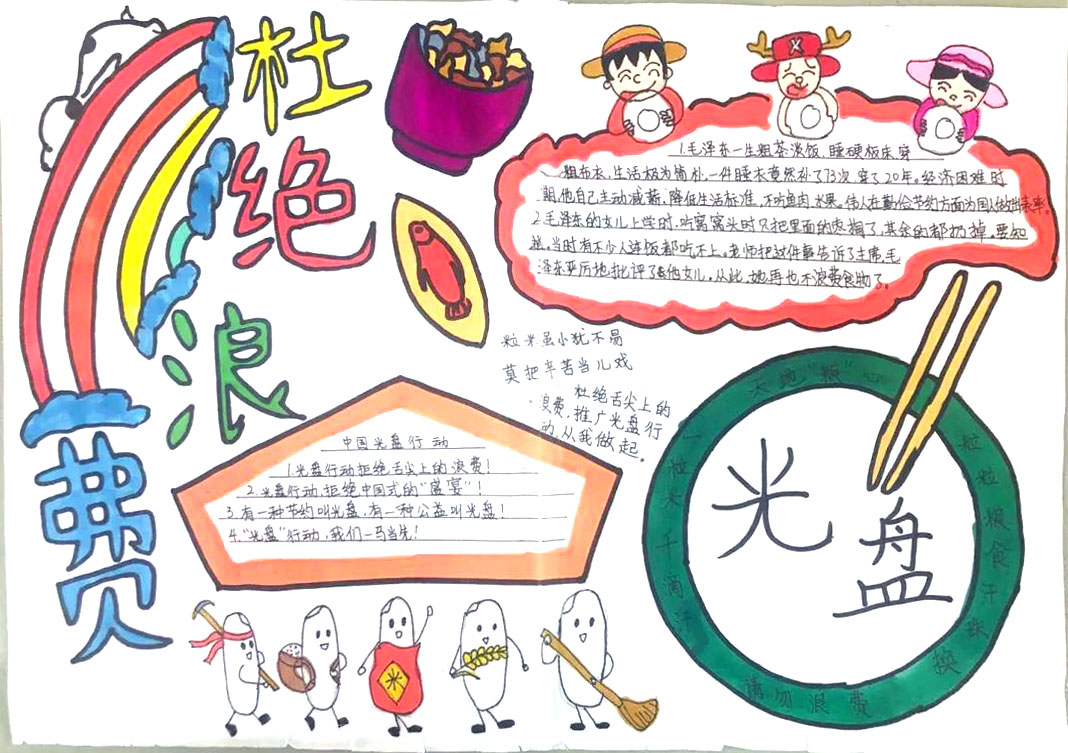 杜绝浪费
1.毛泽东一生粗茶淡饭、睡硬板床、穿
粗布衣,生活极为简朴,一件睡衣竟然补了73次,穿了20年。经济困难时
期,他自己主动减薪、降低生活标准,不吃鱼肉、水果。伟人在勤俭节约方面为国人做出表率。
2.毛泽东的女儿上学时,吃窝窝头时只把里面的枣掏了,其余的都扔掉。要知
道,当时有不少人连饭都吃不上。老师把这件事告诉了主席,毛
泽东严厉地批评了他女儿。从此,她再也不浪费食物了。
粒米虽小犹不易
莫把辛苦当儿戏
杜绝舌尖上的
浪费,推广光盘行
动,从我做起。
中国光盘行动
1.光盘行动拒绝舌尖上的浪费!
2.光盘行动,拒绝中国式的"盛宴"!
3.有一种节约叫光盘,有一种公益叫光盘!
4."光盘"行动,我们一马当先!
米
光盘
一粒米千滴汗
粒粒粮食汗珠换
请勿浪费